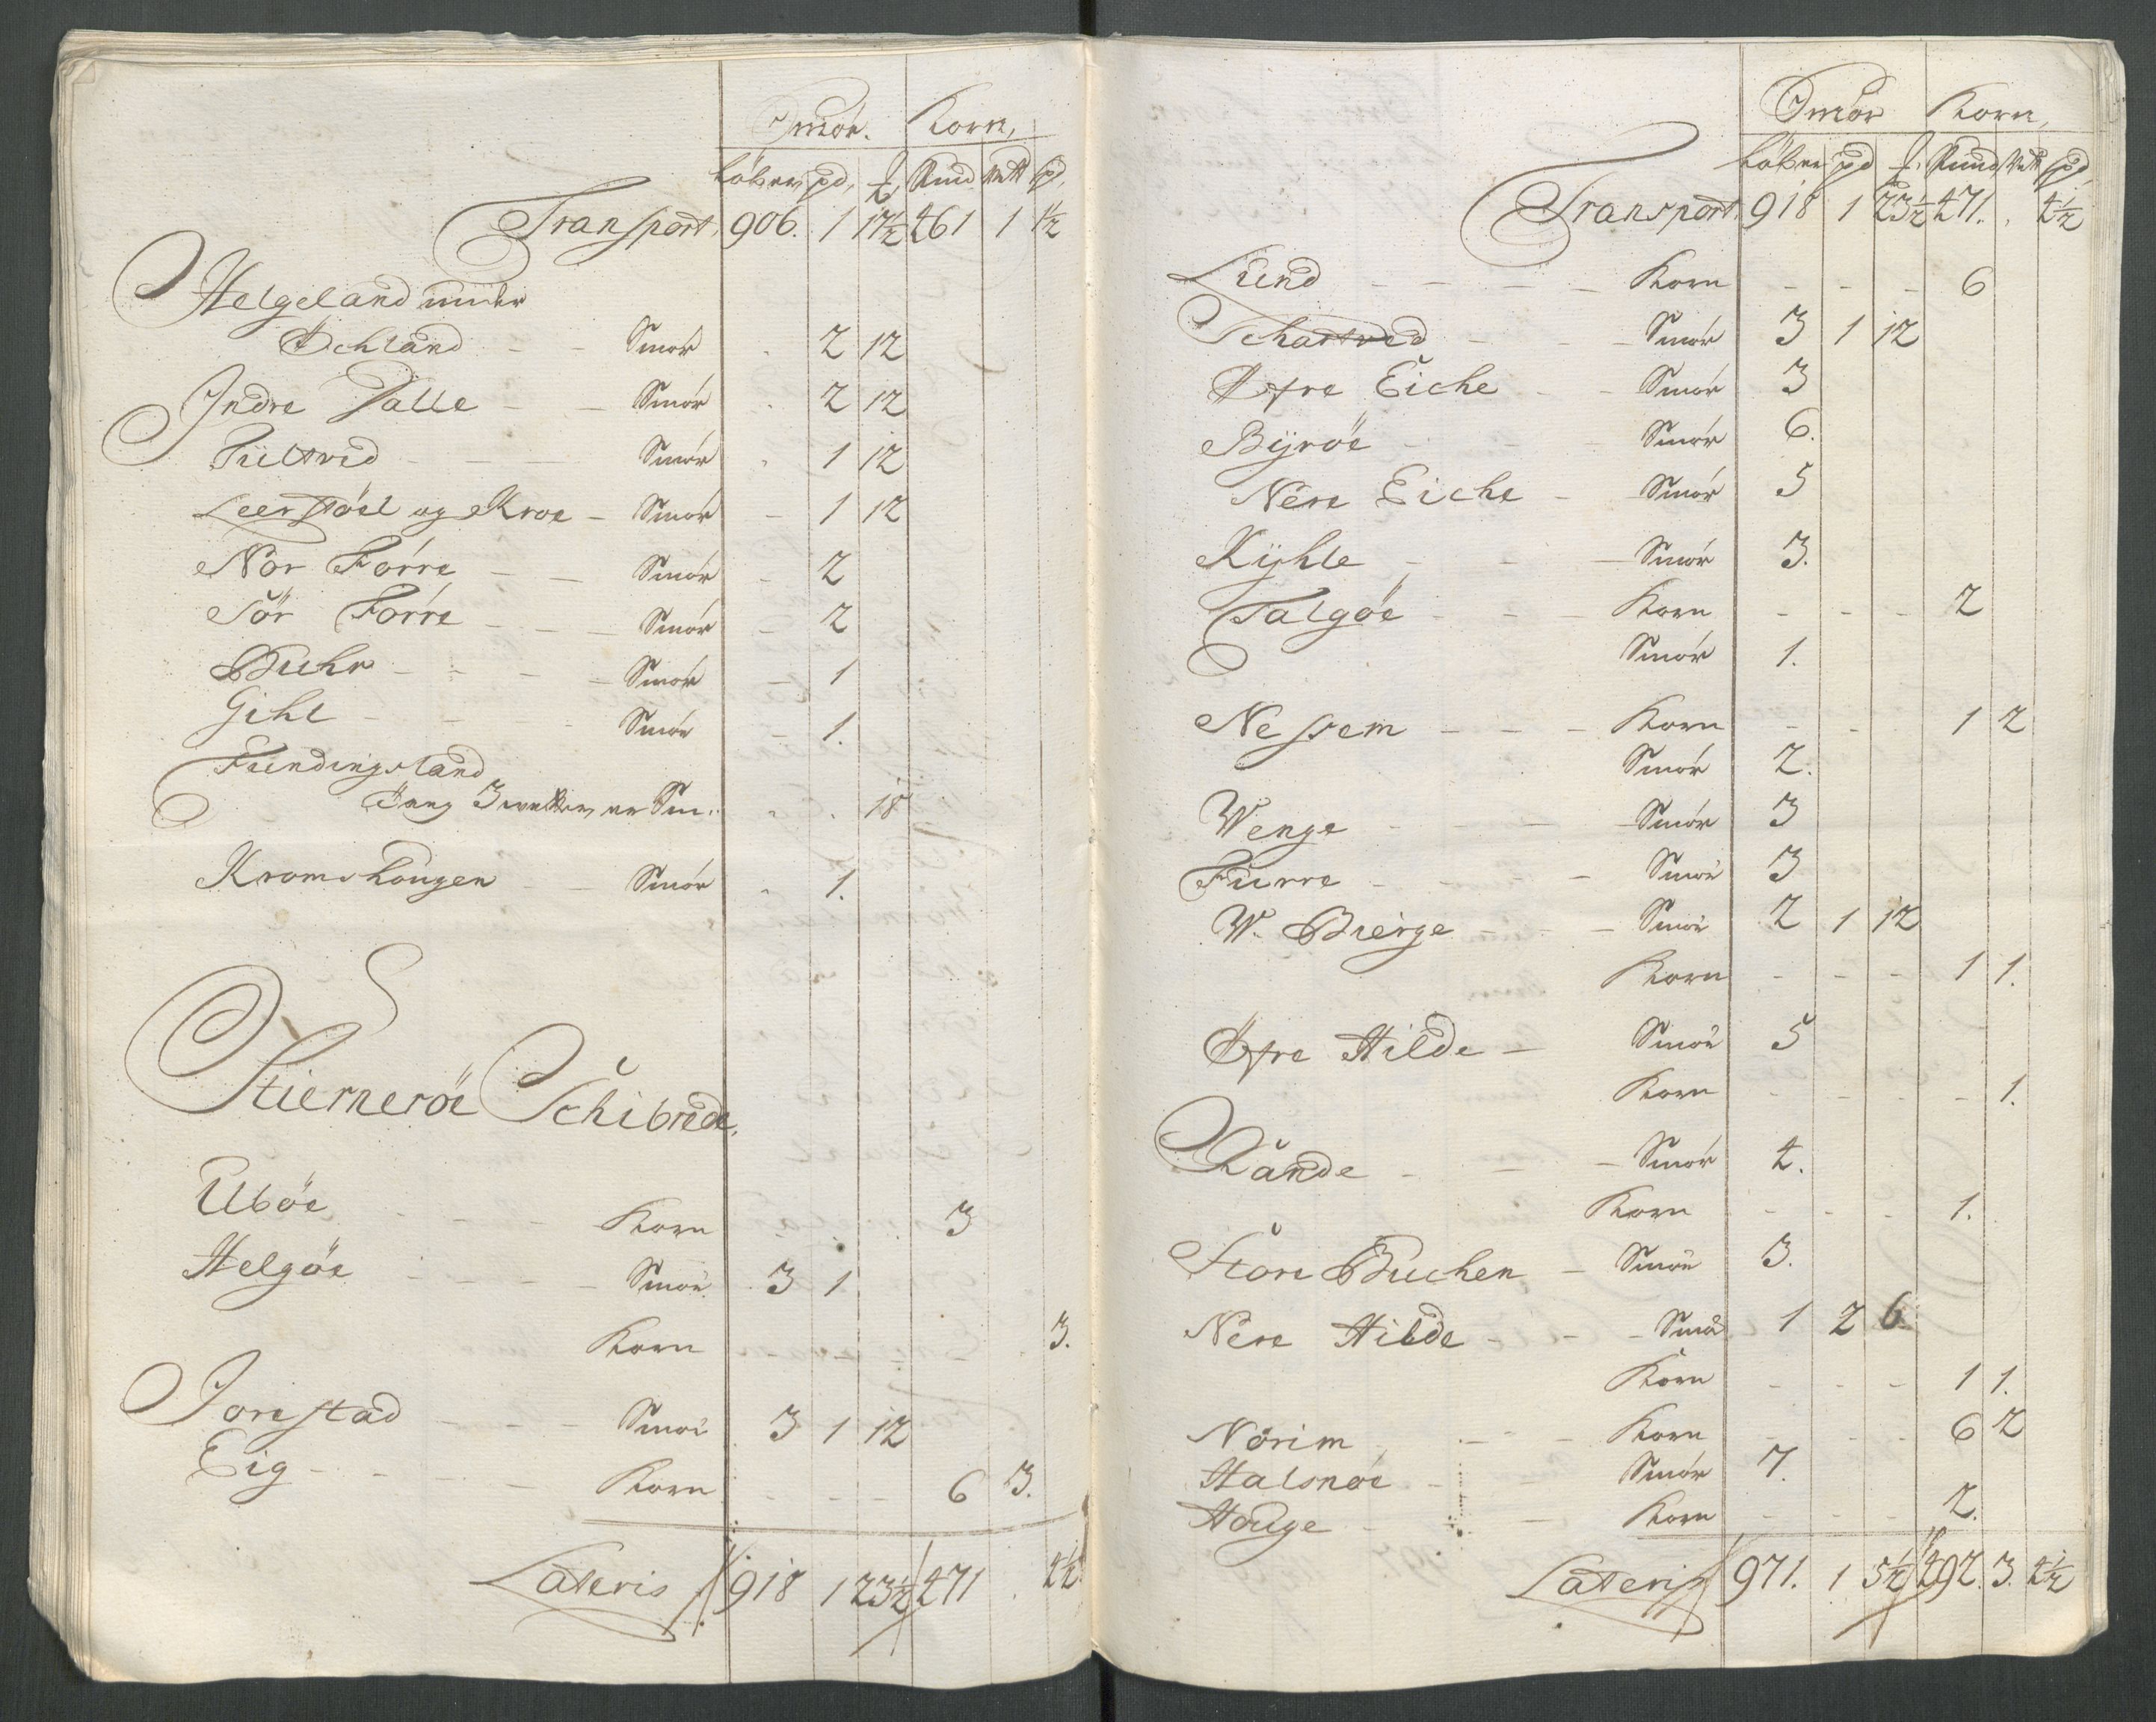 Smör. Korn,
Löber pd, ℔, Pund Vett Spd,
Transport, 906. 1 17½ 461 1 1½
Helgeland under
Öchland - - Smör . 2 12
Indre Talle - - Smör . 2 12
Tiltved - - - Smör . 1 12
Leerstöel og Kroe - Smör - 1 12
Nör Förre - - Smör - 2
Sör Förre - - - Smör - 2
Buhr - - - - Smör - 1
Gihl - - - Smör - 1.
Fundingsland
3 Sm: . . 18
Kromshougen - - Smör . 1.
Stierneröe Schibrede,
Uböe - - - Korn 3
Helgöe - - - - Smör 3 1
Korn - - - - - 3.
Jorestad - - - Smör 3 1 12
Eig - - - - - Korn - - - 6 3.
Lateris 918 1 23½ 471 . 4½
Smör Korn,
Löber pd ℔. Pund Vett Spd,
Transport, 918 1 23½ 471. . 4½
Lund - - - - Korn - - - 6
Schartved - - - Smör 3 1 12
Öfre Eiche - - Smör 3
Byröe - - - Smör 6.
Nere Eiche - Smör 5
Kyhle - - - Smör 3.
Talgöe - - - Korn - - - 2
Smör 1.
Nessem - - - Korn - - 1 2
Smör 2.
Wenge - - - - Smör 3
Furre - - - Smör 3
W. Bierge - - - Smör 2 1 12
Korn - - - 1 1.
Öfre Hilde - Smör 5
Korn - - - - 1.
Rande - - - Smör 4.
Korn - - - 1.
Store Buchen - Smör 3.
Nere Hilde - - - Smör 1 2 6
Korn - - - 1 1.
Nörim - - - Korn - - - 6 2
Halsnöe - - Smör 7.
Houge - - Korn - - - 2.
Lateris 971. 1 5½ 492. 3. 4½